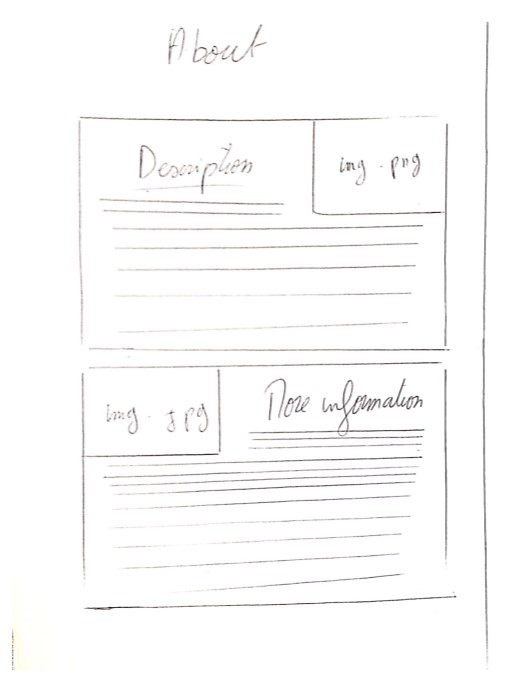 About
Description
img.png
img.jpg
More information